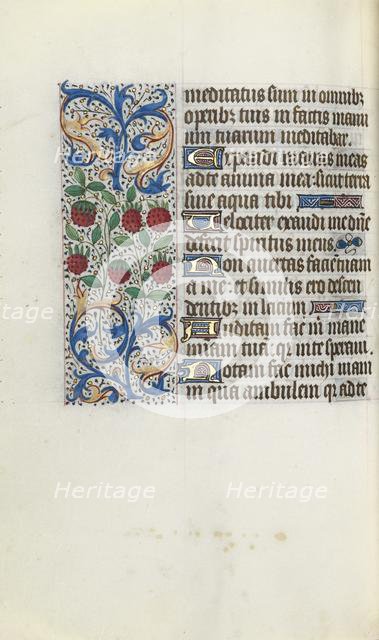 meditatus sum in omnibz
operibz tuis in factis manu
um tuarum meditabar.
Expandi manus meas
ad te anima mea sicut terra
sine aqua tibi
Velociter exaudi me dne
defecit spiritus meus.
Non auertas faciem tuam
a me et similis ero descen
dentibus in lacum
Auditam fac in mane
miam tuam qr in te speraui.
Notam fac michi uiam
in qua ambulem qr ad te
Heritage Heritage
Heritage Heritage